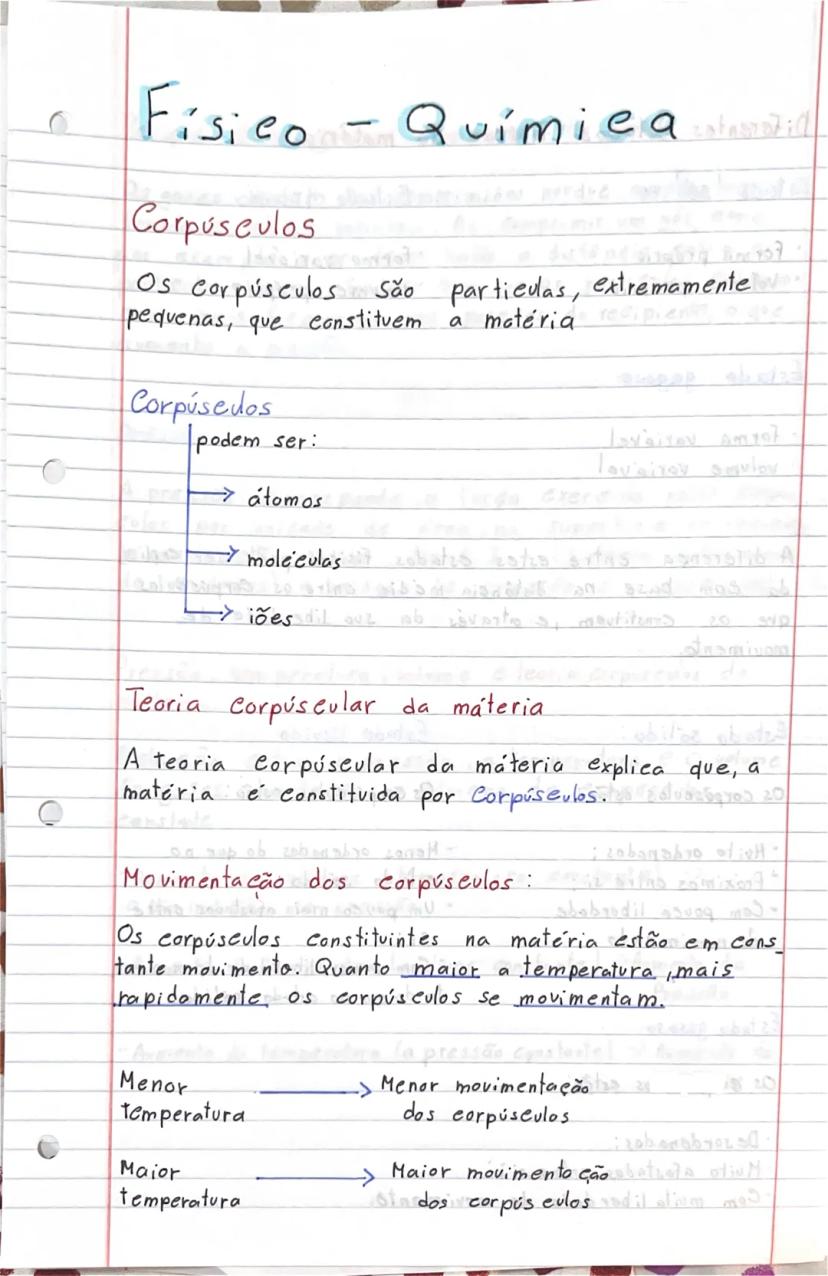 Físico - Química
Corpúsculos
Os corpúsculos são particulas, extremamente
pequenas, que constituem a matéria
Corpúsculos
podem ser:
→ átomos
→ moléculas
→ iões
Teoria corpúscular da máteria
A teoria corpúscular da máteria explica que, a
matéria é constituida por Corpúsculos.
Movimentação dos corpúsculos:
Os corpúsculos constituintes na matéria estão em cons_
tante movimento. Quanto maior a temperatura, mais
rapidamente os corpúsculos se movimentam.
Menor → Menor movimentação
temperatura dos corpúsculos
Maior → Maior movimentação
temperatura dos corpúsculos